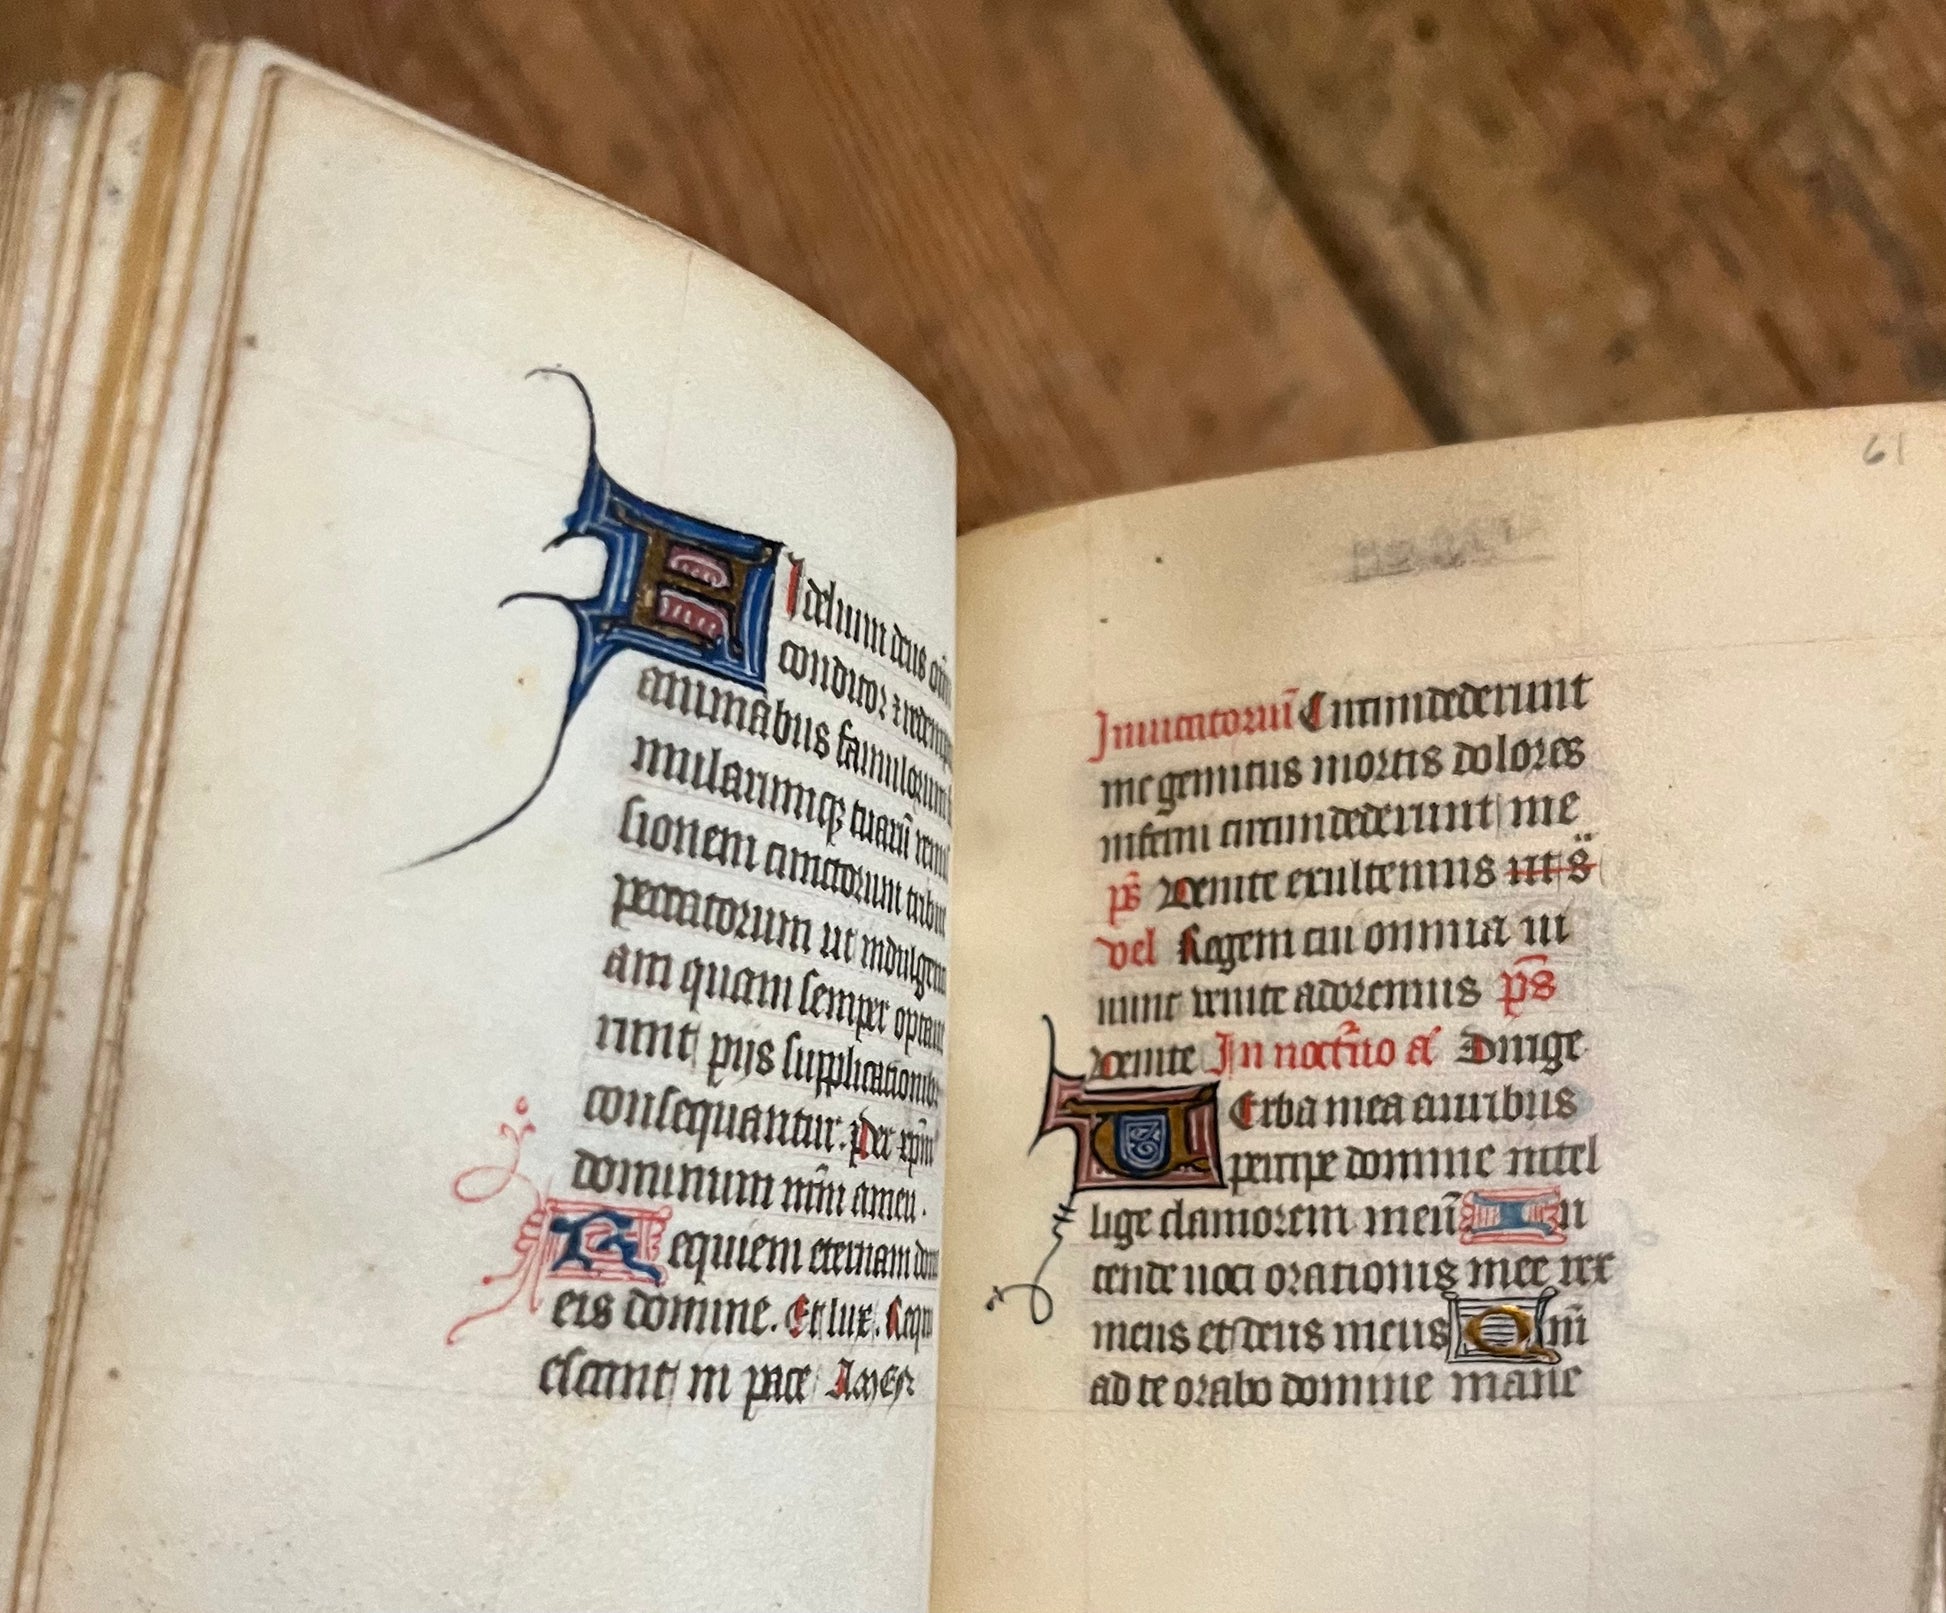 Fidelium deus om̄
conditor ⁊ redemp
animabus famulorum
mularumqꝫ tuarū remis
sionem cunctorum tribue
peccatorum ut indulgen
am quam semper optaue
runt pijs supplicationib
consequantur. Per xp̄m
dominum nr̄m amen.
Requiem eternam dona
eis domine. Et lux. Requi
escant in pace Amen
61
Inuitatoriū Circumdederunt
me gemitus mortis dolores
inferni circumdederunt me
p̄s Venite exultemus ut s̄
vel Regem cui omnia ui
uunt venite adoremus p̄s
Venite In noct̄no a͛ Dirige
Verba mea auribus
percipe domine intel
lige clamorem meū In
tende uoci orationis mee rex
meus et deus meus Qm̄
ad te orabo domine mane